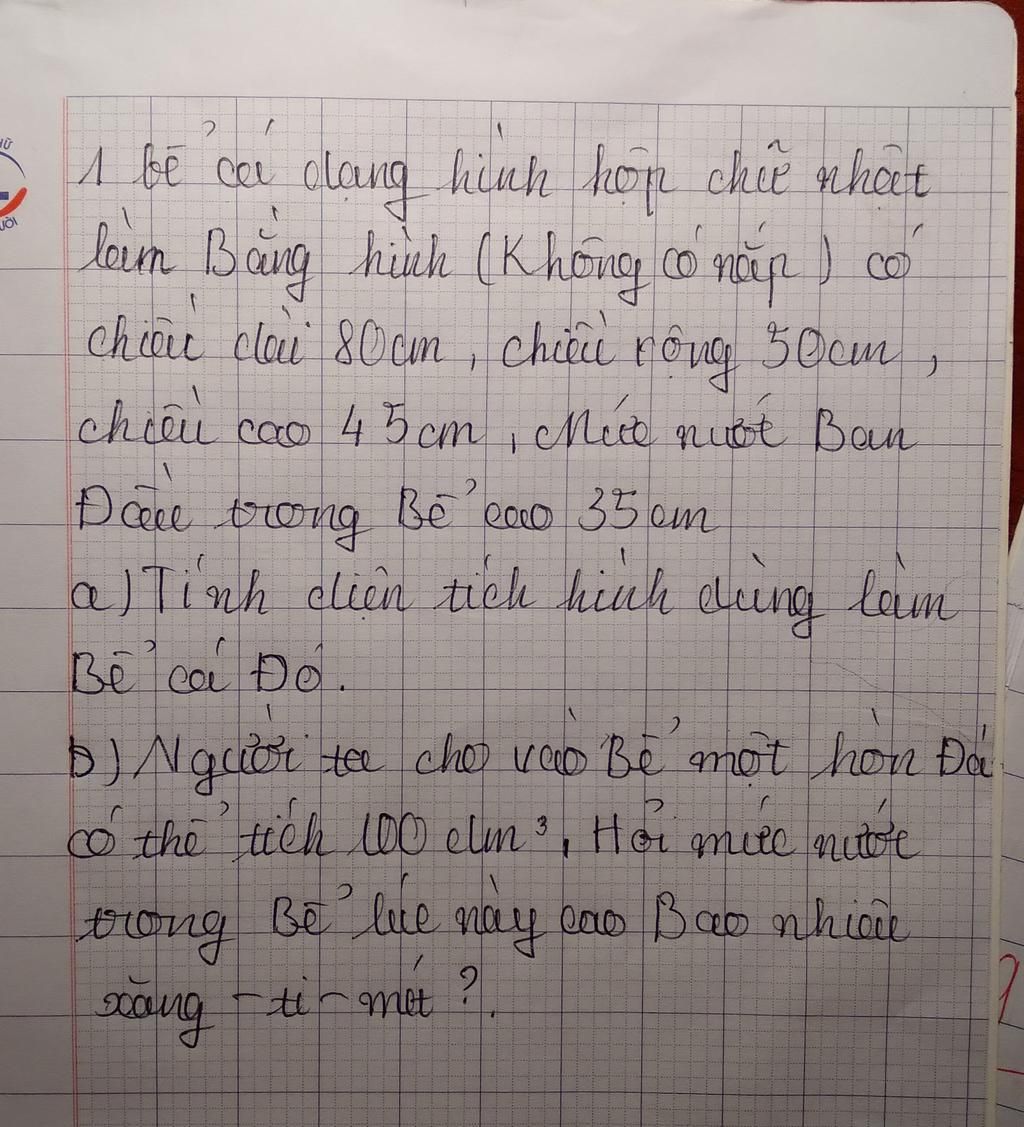 1 bể cá dạng hình hộp chữ nhật
làm Bằng hình (Không có nắp) có
chiều dài 80cm, chiều rộng 50cm,
chiều cao 45cm, Mức nước Ban
Đầu trong Bể cao 35cm
a) Tính diện tích hình dùng làm
Bể cá Đó.
b) Người ta cho vào Bể một hòn Đá
có thể tích 100 dm³, Hỏi mức nước
trong Bể lúc này cao Bao nhiêu
xăng-ti-mét?.